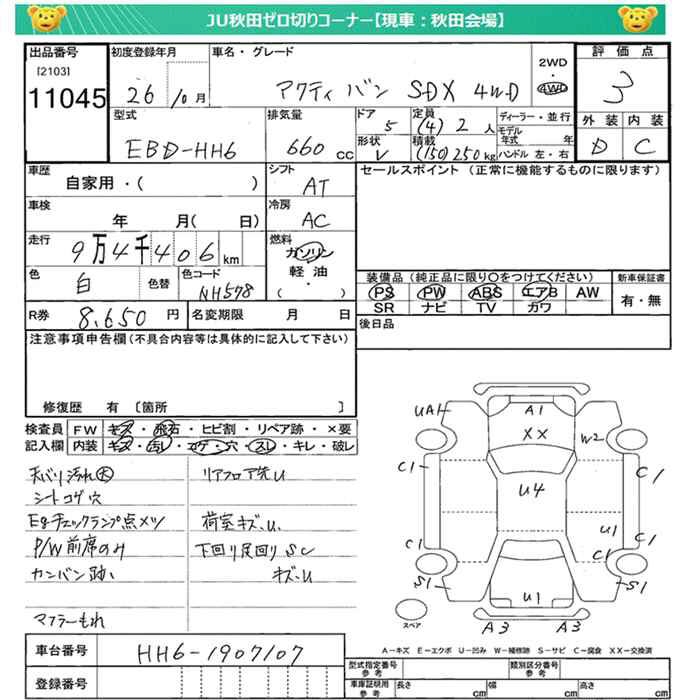 JU秋田ゼロ切りコーナー【現車：秋田会場】
出品番号 初度登録年月 車名・グレード 2WD ・ 4WD 評価点
[2103]
11045 26 10月 アクティ バン SDX 4WD 3
型式 排気量 ドア 定員 ディーラー・並行 外装 内装
EBD-HH6 660cc 5 (4) 2人 モデル年式 年 D C
形状 積載 ハンドル 左・右
V (150)250kg
車歴 シフト セールスポイント (正常に機能するものに限ります)
自家用・( ) AT
車検 冷房
年 月( 日) AC
走行 燃料
9万4千406km ガソリン
軽油
( )
色 色替 色コード 装備品 (純正品に限り○をつけてください) 新車保証書
白 NH578 PS PW ABS エアB AW 有・無
SR ナビ TV カワ
R券 8,650円 名変期限 月 日 後日品
注意事項申告欄(不具合内容等は具体的に記入して下さい)
修復歴 有 〔箇所 〕
検査員 FW キズ・飛石・ヒビ割・リペア跡・×要
記入欄 内装 キズ・汚れ・コゲ・穴・スレ・キレ・破レ
天バリ汚れ大 リアフロア洗U
シートコゲ穴
Egチェックランプ点メツ 荷室キズ、U、
P/W前席のみ 下回り足回りSC
カンバン跡 キズ、U
マフラーもれ
A1
UA1 XX W2
C1 U4 C1
U1
C1 C1 C
S1 U1 S1
スペア A3 A3
A−キズ E−エクボ U−凹み W−補修跡 S−サビ C−腐食 XX−交換済
車台番号 HH6-1907107 型式指定番号 参考 類別区分番号 参考
登録番号 車庫証明用 参考 長さ cm 幅 cm 高さ cm